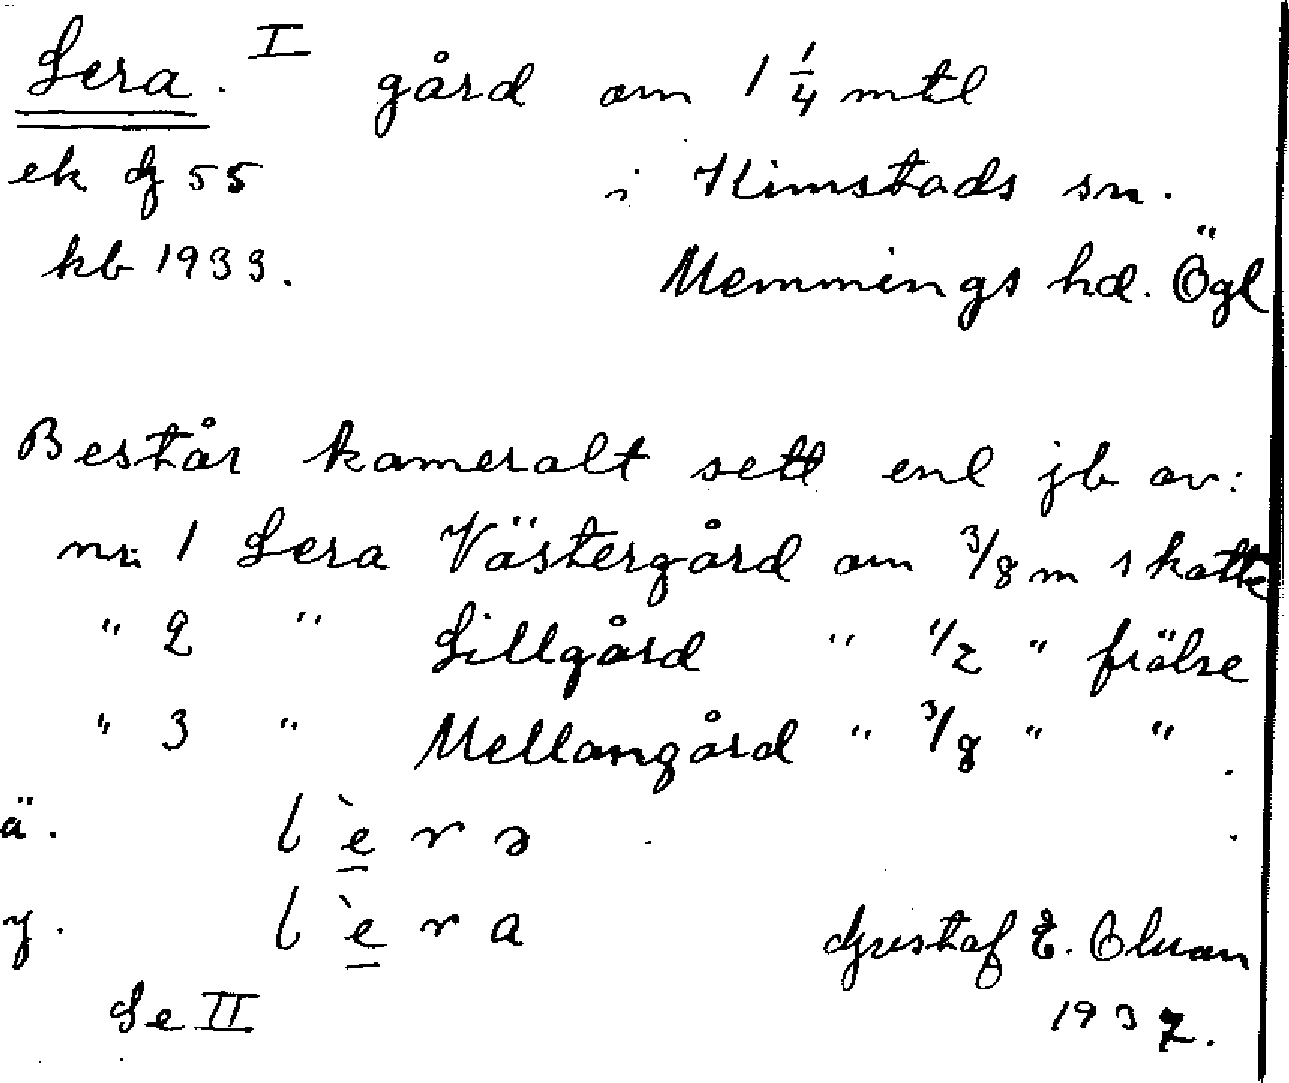 Lera. I gård om 1 1/4 mtl
ek dj 55 i Kimstads sn.
kb 1933. Memmings hd. Ögl
Består kameralt sett enl jb av:
nr. 1 Lera Västergård om 3/8 m skatte
" 2 " Lillgård " 1/2 " frälse
" 3 " Mellangård " 3/8 " ".
ä. l`e̲rə
y. l`e̲ra
Gustaf E. Olsson
Se II
1937.